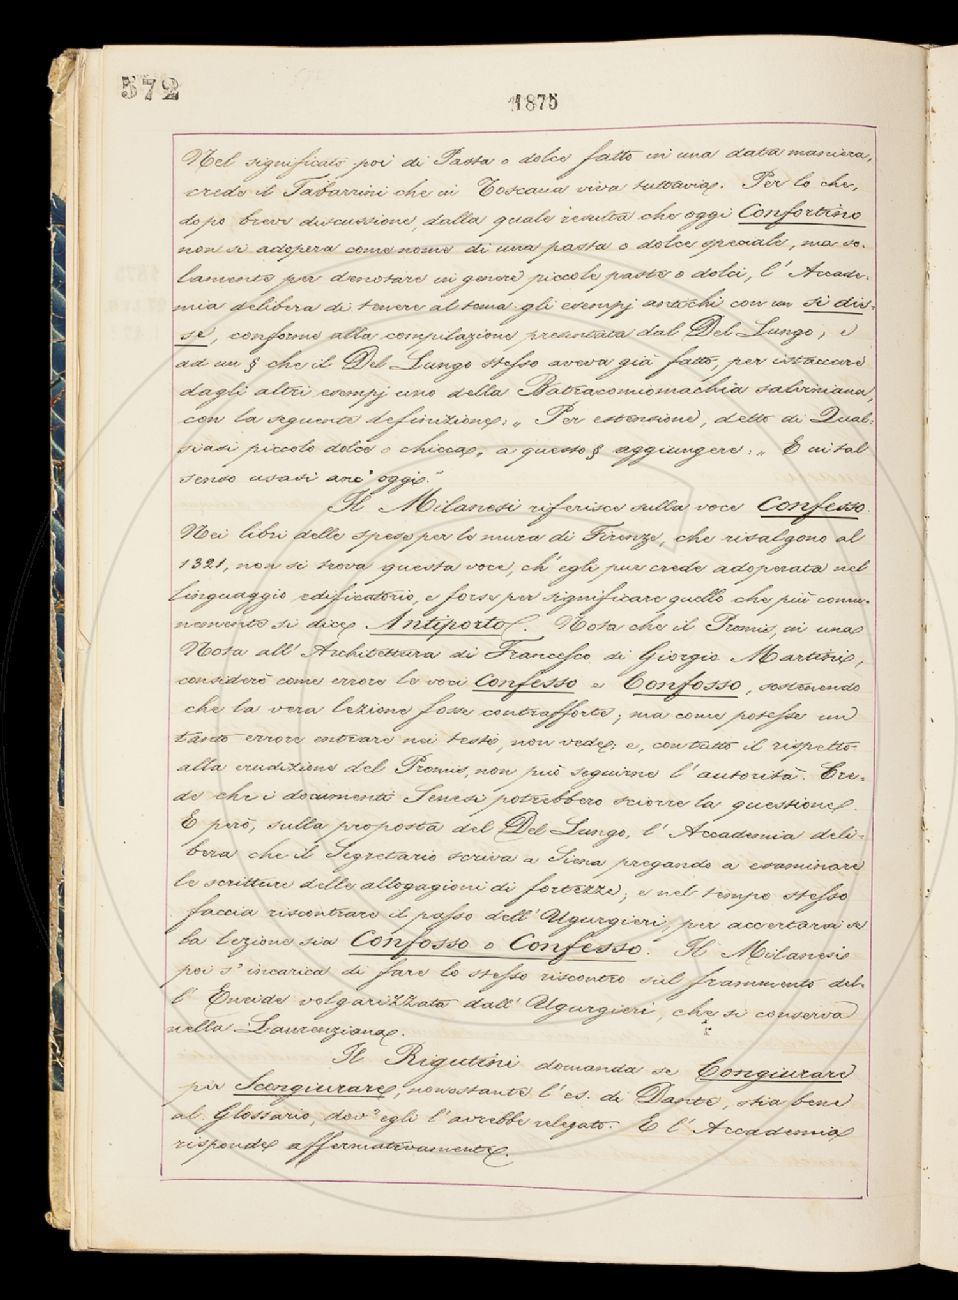 572
1875
Nel significato poi di Pasta o dolce fatto in una data maniera,
crede il Tabarrini che in Toscana viva tuttavia. Per lo che,
dopo breve discussione, dalla quale resulta che oggi Confortino
non si adopera come nome di una pasta o dolce speciale, ma so-
lamente per denotare in genere piccole paste o dolci, l' Accade-
mia delibera di tenere al tema gli esempj antichi con un si dis-
se, conforme alla compilazione presentata dal Del Lungo, e
ad un § che il Del Lungo stesso aveva già fatto, per istaccare
dagli altri esempj uno della Batracomiomachia salviniana,
con la seguente definizione: „ Per estensione, detto di Qual-
siasi piccolo dolce o chicca„ a questo § aggiungere: „ E in tal
senso usasi anc' oggi„
Il Milanesi riferisce sulla voce Confesso.
Nei libri delle spese per le mura di Firenze, che risalgono al
1321, non si trova questa voce, ch' egli pur crede adoperata nel
linguaggio edificatorio, e forse per significare quello che più comu-
nemente si dice Antiporto. Nota che il Promis, in una
Nota all' Architettura di Francesco di Giorgio Martini,
considerò come errore le voci Confesso e Confosso, sostenendo
che la vera lezione fosse contrafforte; ma come potesse un
tanto errore entrare nei testi, non vede; e, con tutto il rispetto
alla erudizione del Promis, non può seguirne l' autorità. Cre-
de che i documenti Senesi potrebbero sciorre la questione.
E però, sulla proposta del Del Lungo, l' Accademia deli-
bera che il Segretario scriva a Siena pregando a esaminare
le scritture delle allogagioni di fortezze; e nel tempo stesso
faccia riscontrare il passo dell' Ugurgieri, per accertarsi se
la lezione sia Confosso o Confesso. Il Milanesi
poi s' incarica di fare lo stesso riscontro sul frammento del-
l' Eneide volgarizzata dall' Ugurgieri, che si conserva
nella Laurenziana.
Il Rigutini domanda se Congiurare
per Scongiurare, nonostante l' es. di Dante, stia bene
al Glossario, dov' egli l' avrebbe relegato. E l' Accademia
risponde affermativamente.